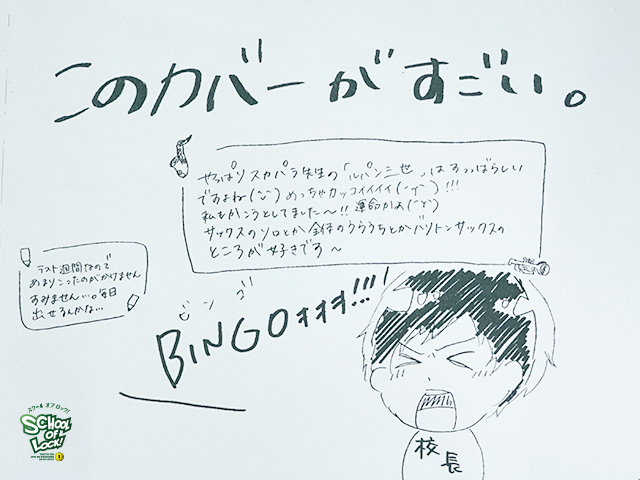 このカバーがすごい。
やっぱりスカパラ先生の「ルパン三世」はすっばらしい
ですよね(¨)めっちゃカッコイイイイ(¨)!!!
私もかこうとしてました〜!!運命かよ(¨)
サックスのソロとか全体のうううちとかバリトンサックスの
ところが好きです〜
テスト週間なので
あまりこったのがかけません
すみません…。毎日
出せるんかな…
ビンゴ
BINGOオオオ!!!
校長
スクール オブ ロック!
SCHOOL
OF
LOCK!